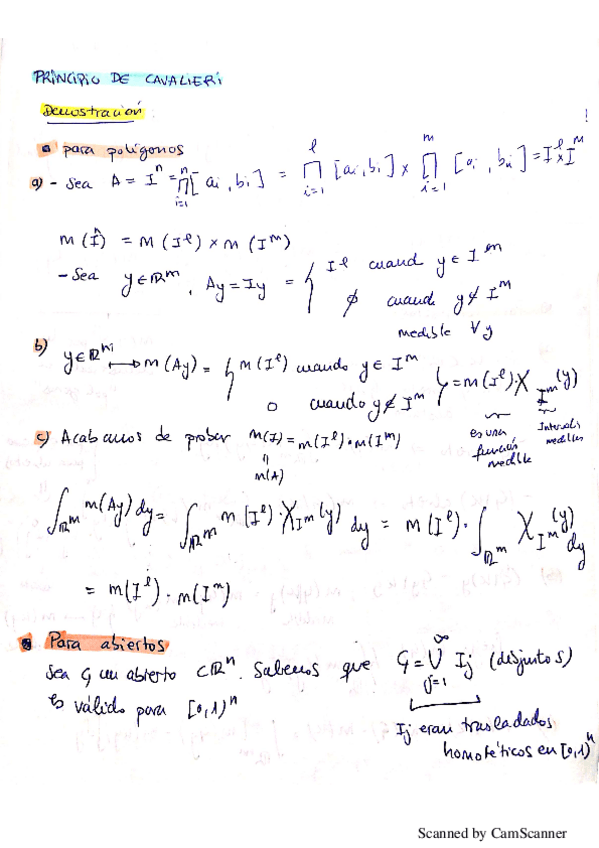 PRINCIPIO DE CAVALIERI
Demostración
!
para polígonos
a) - Sea A = Iⁿ = ∏ⁿᵢ₌₁ [ai, bi] = ∏ˡᵢ₌₁ [ai, bi] × ∏ᵐᵢ₌₁ [ai, bi] = Iˡ × Iᵐ
m(I) = m(Iˡ) × m(Iᵐ)
- Sea y ∈ ℝᵐ, Ay = Iy = { Iˡ cuand y ∈ Iᵐ
∅ cuand y ∉ Iᵐ
medible ∀y
b) y ∈ ℝᵐ ↦ m(Ay) = { m(Iˡ) cuando y ∈ Iᵐ
0 cuando y ∉ Iᵐ } = m(Iˡ) · χ_Iᵐ(y)
es una función medible
Intervalos medibles
c) Acabamos de probar m(I) = m(Iˡ) · m(Iᵐ)
=
m(A)
∫_ℝᵐ m(Ay) dy = ∫_ℝᵐ m(Iˡ) · χ_Iᵐ(y) dy = m(Iˡ) · ∫_ℝᵐ χ_Iᵐ(y) dy
= m(Iˡ) · m(Iᵐ)
Para abiertos
Sea G un abierto ⊂ ℝⁿ. Sabemos que G = ⋃^∞_j=1 Ij (disjuntos)
↳ válido para [0,1)ⁿ
Ij eran trasladados
homotéticos en [0,1)ⁿ
Scanned by CamScanner